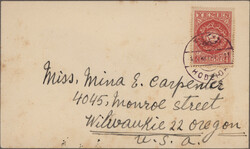 YEMEN
HODEIDA
Miss, Mina E. Carpenter
4045, Monroe street
Wilwaukie 22 oregon
U. S. A.